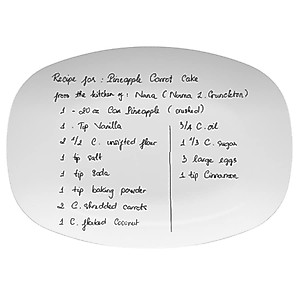 Recipe for : Pineapple Carrot Cake
from the kitchen of : Nana ( Norma L. Crunckton)
1 - 20 oz Can Pineapple ( crushed)
1 Tip Vanilla
2 1/2 C. unsifted flour
1 tip Salt
1 tip Soda
1 tip baking powder
2 C. shredded carrots
1 C. flaked Coconut
3/4 C. oil
1 1/3 C. Sugar
3 large eggs
1 tip Cinnamon